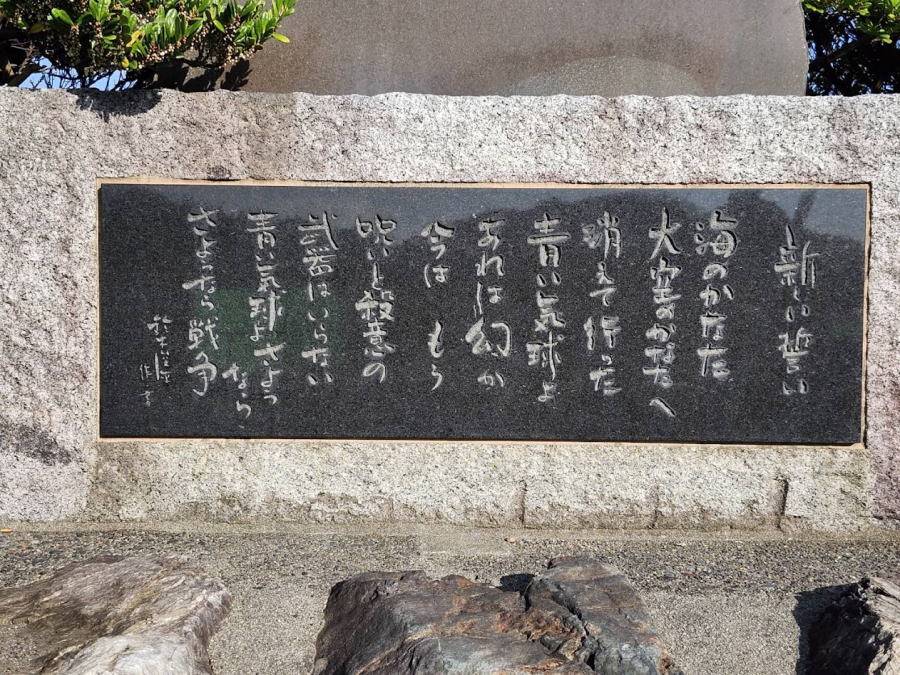 新しい誓い
海のかなた
大空のかなたへ
消えて行った
青い気球よ
あれは幻か
今は もう
呪いと殺意の
武器はいらない
青い気球よ さようなら
さようなら 戦争
鈴木俊平
作 書